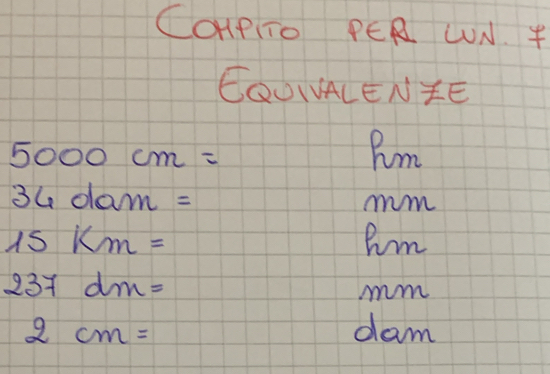 COMPITO PER LUN. 7
EQUIVALENZE
5000 cm = hm
34 dam = mm
15 Km = hm
237 dm = mm
2 cm = dam